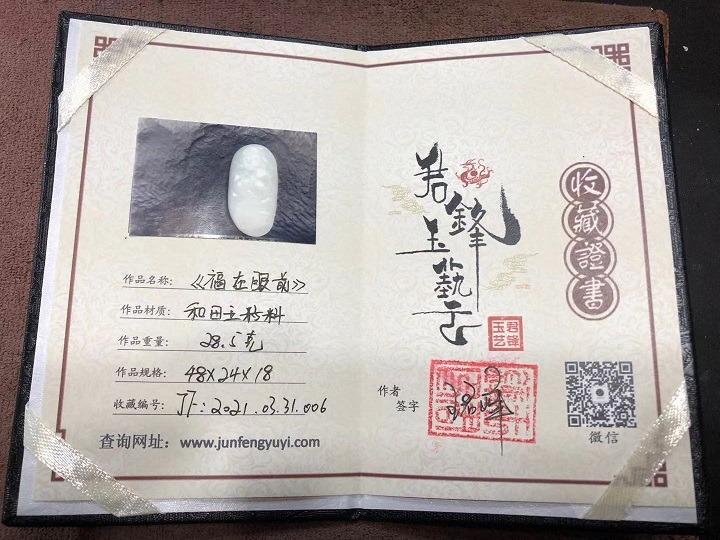 作品名称：《福在眼前》
作品材质：和田玉籽料
作品重量：28.5克
作品规格：48×24×18
收藏编号：JF：2021.03.31.006
查询网址：www.junfengyuyi.com
君鋒玉藝
收藏證書
君锋玉艺
作者
签字
微信